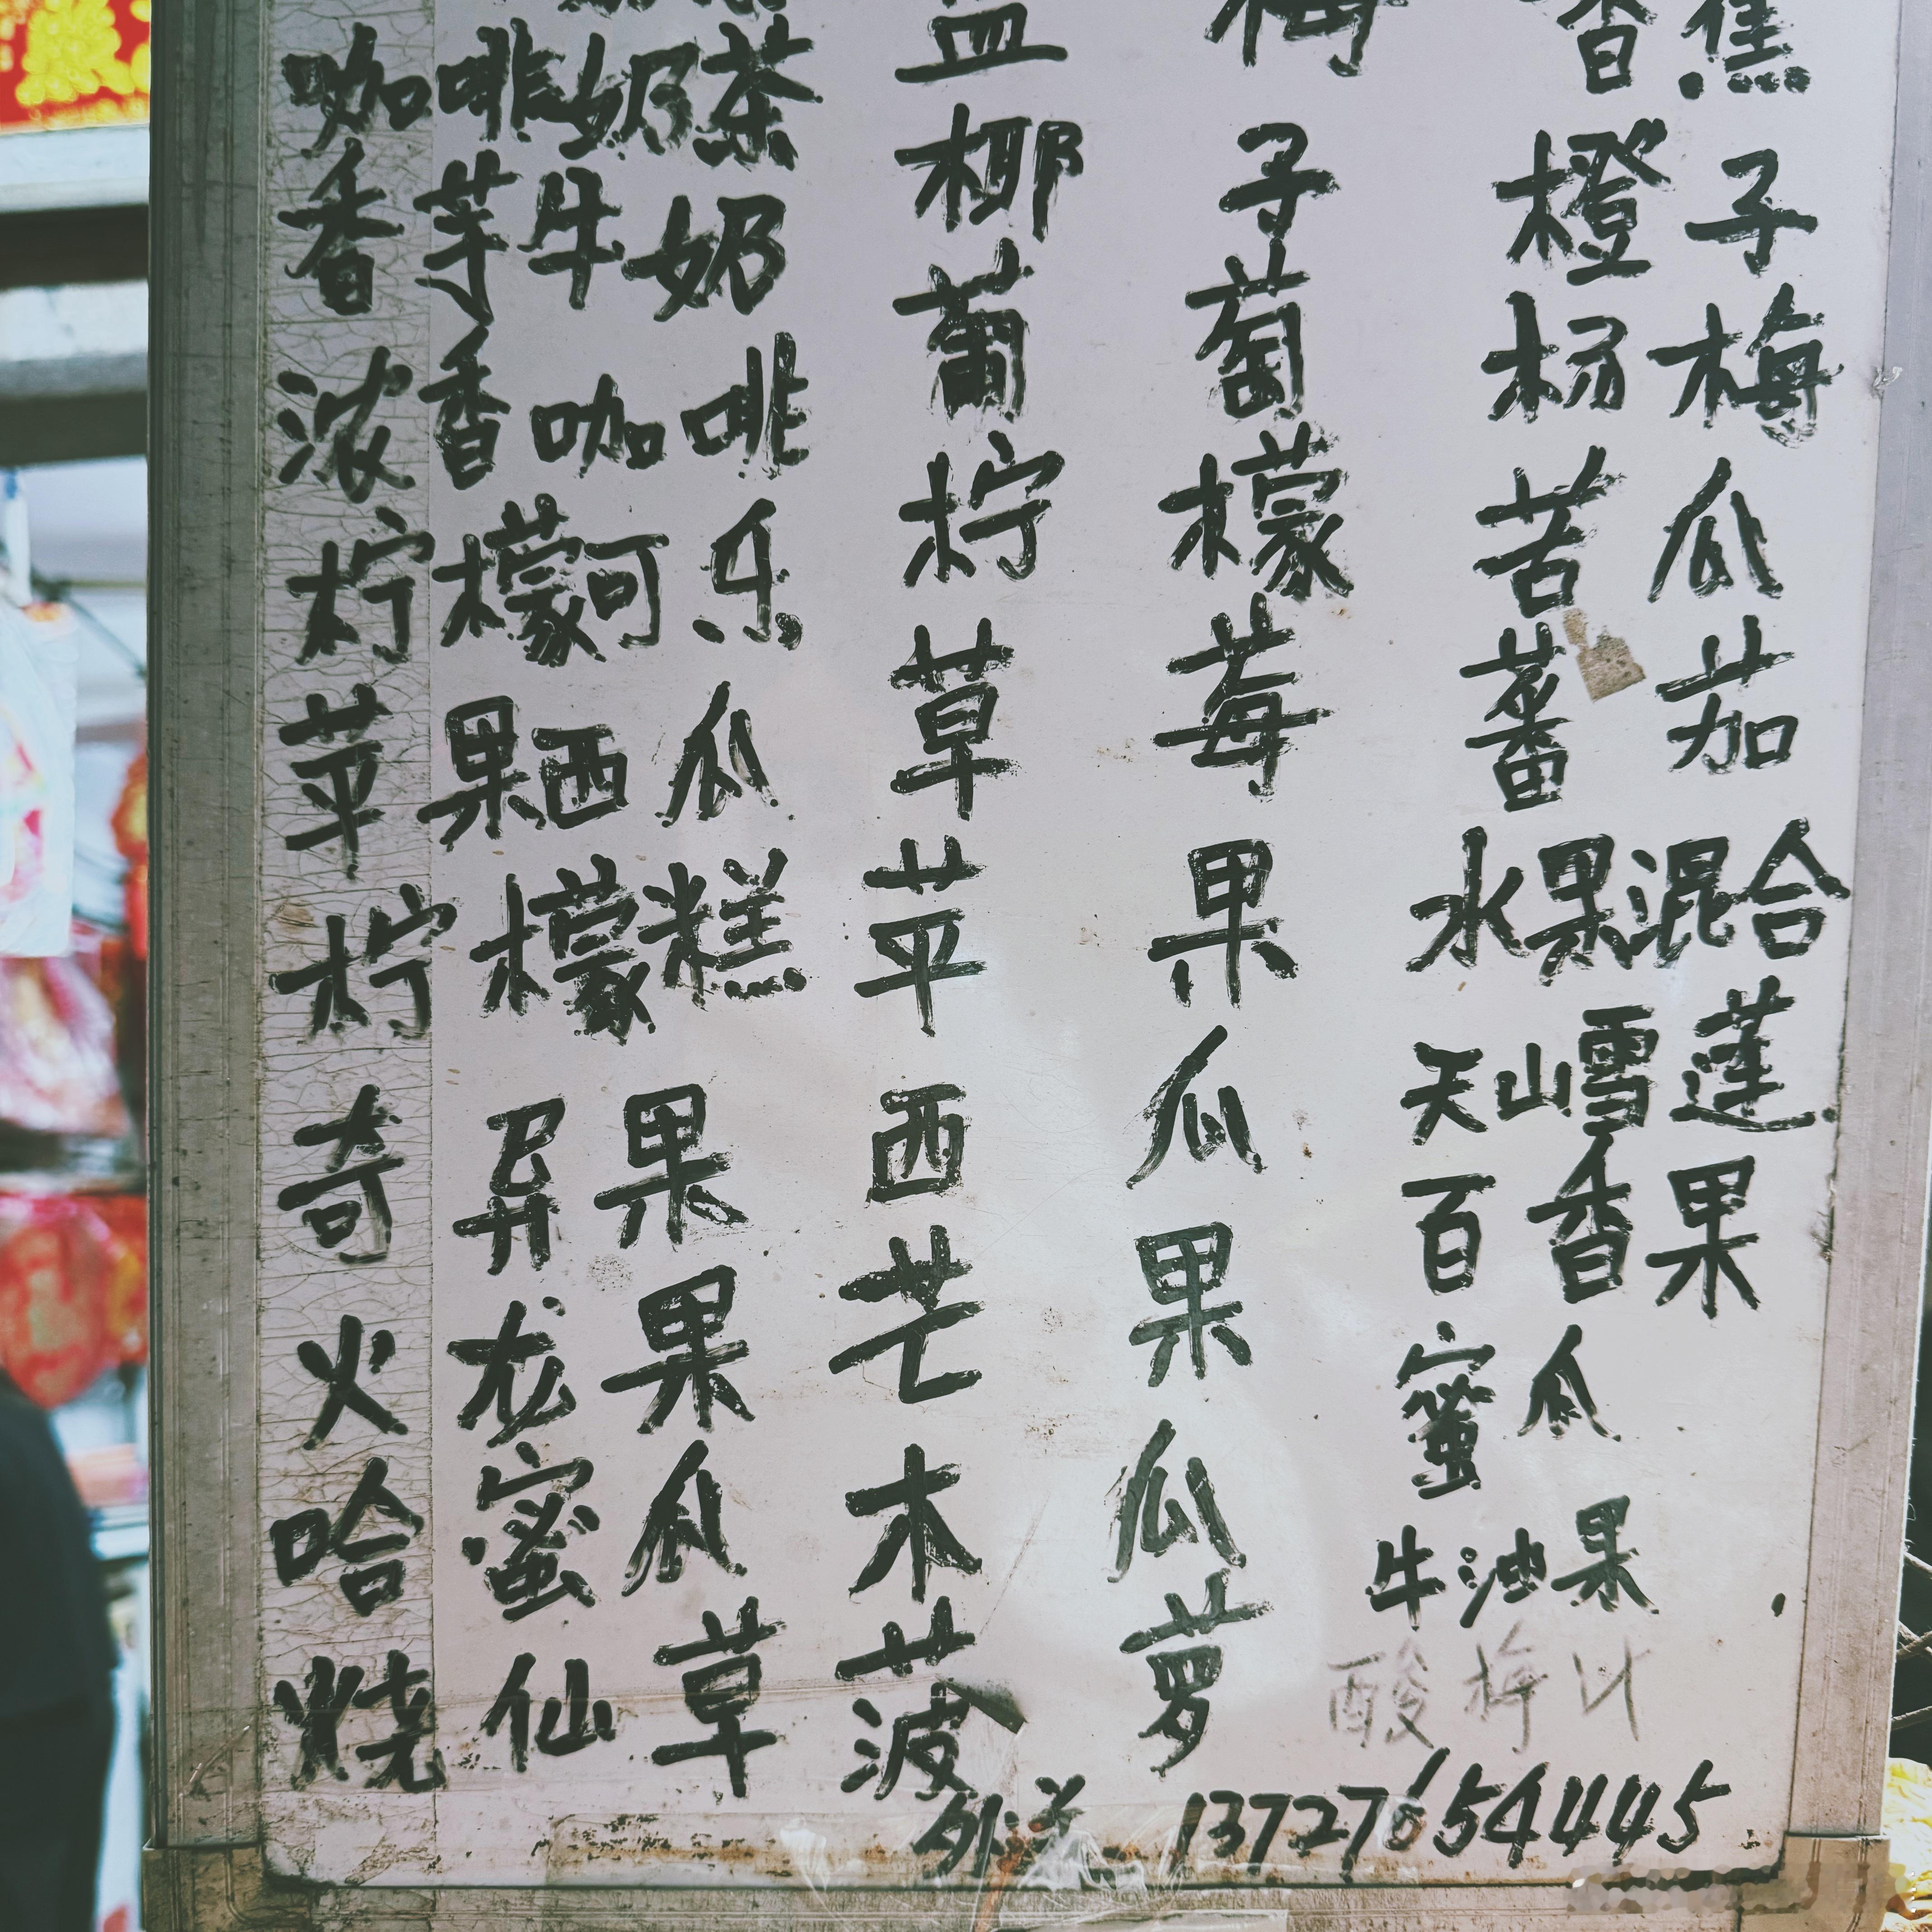 咖啡奶茶
香芋牛奶
浓香咖啡
柠檬可乐
苹果西瓜
柠檬糕
奇异果
火龙果
哈蜜瓜
烧仙草
椰子
葡萄
柠檬
草莓
苹果
西瓜
芒果
木瓜
菠萝
香蕉
橙子
杨梅
苦瓜
蕃茄
水果混合
天山雪莲
百香果
蜜瓜
牛油果
酸梅汁
外送 13727654445